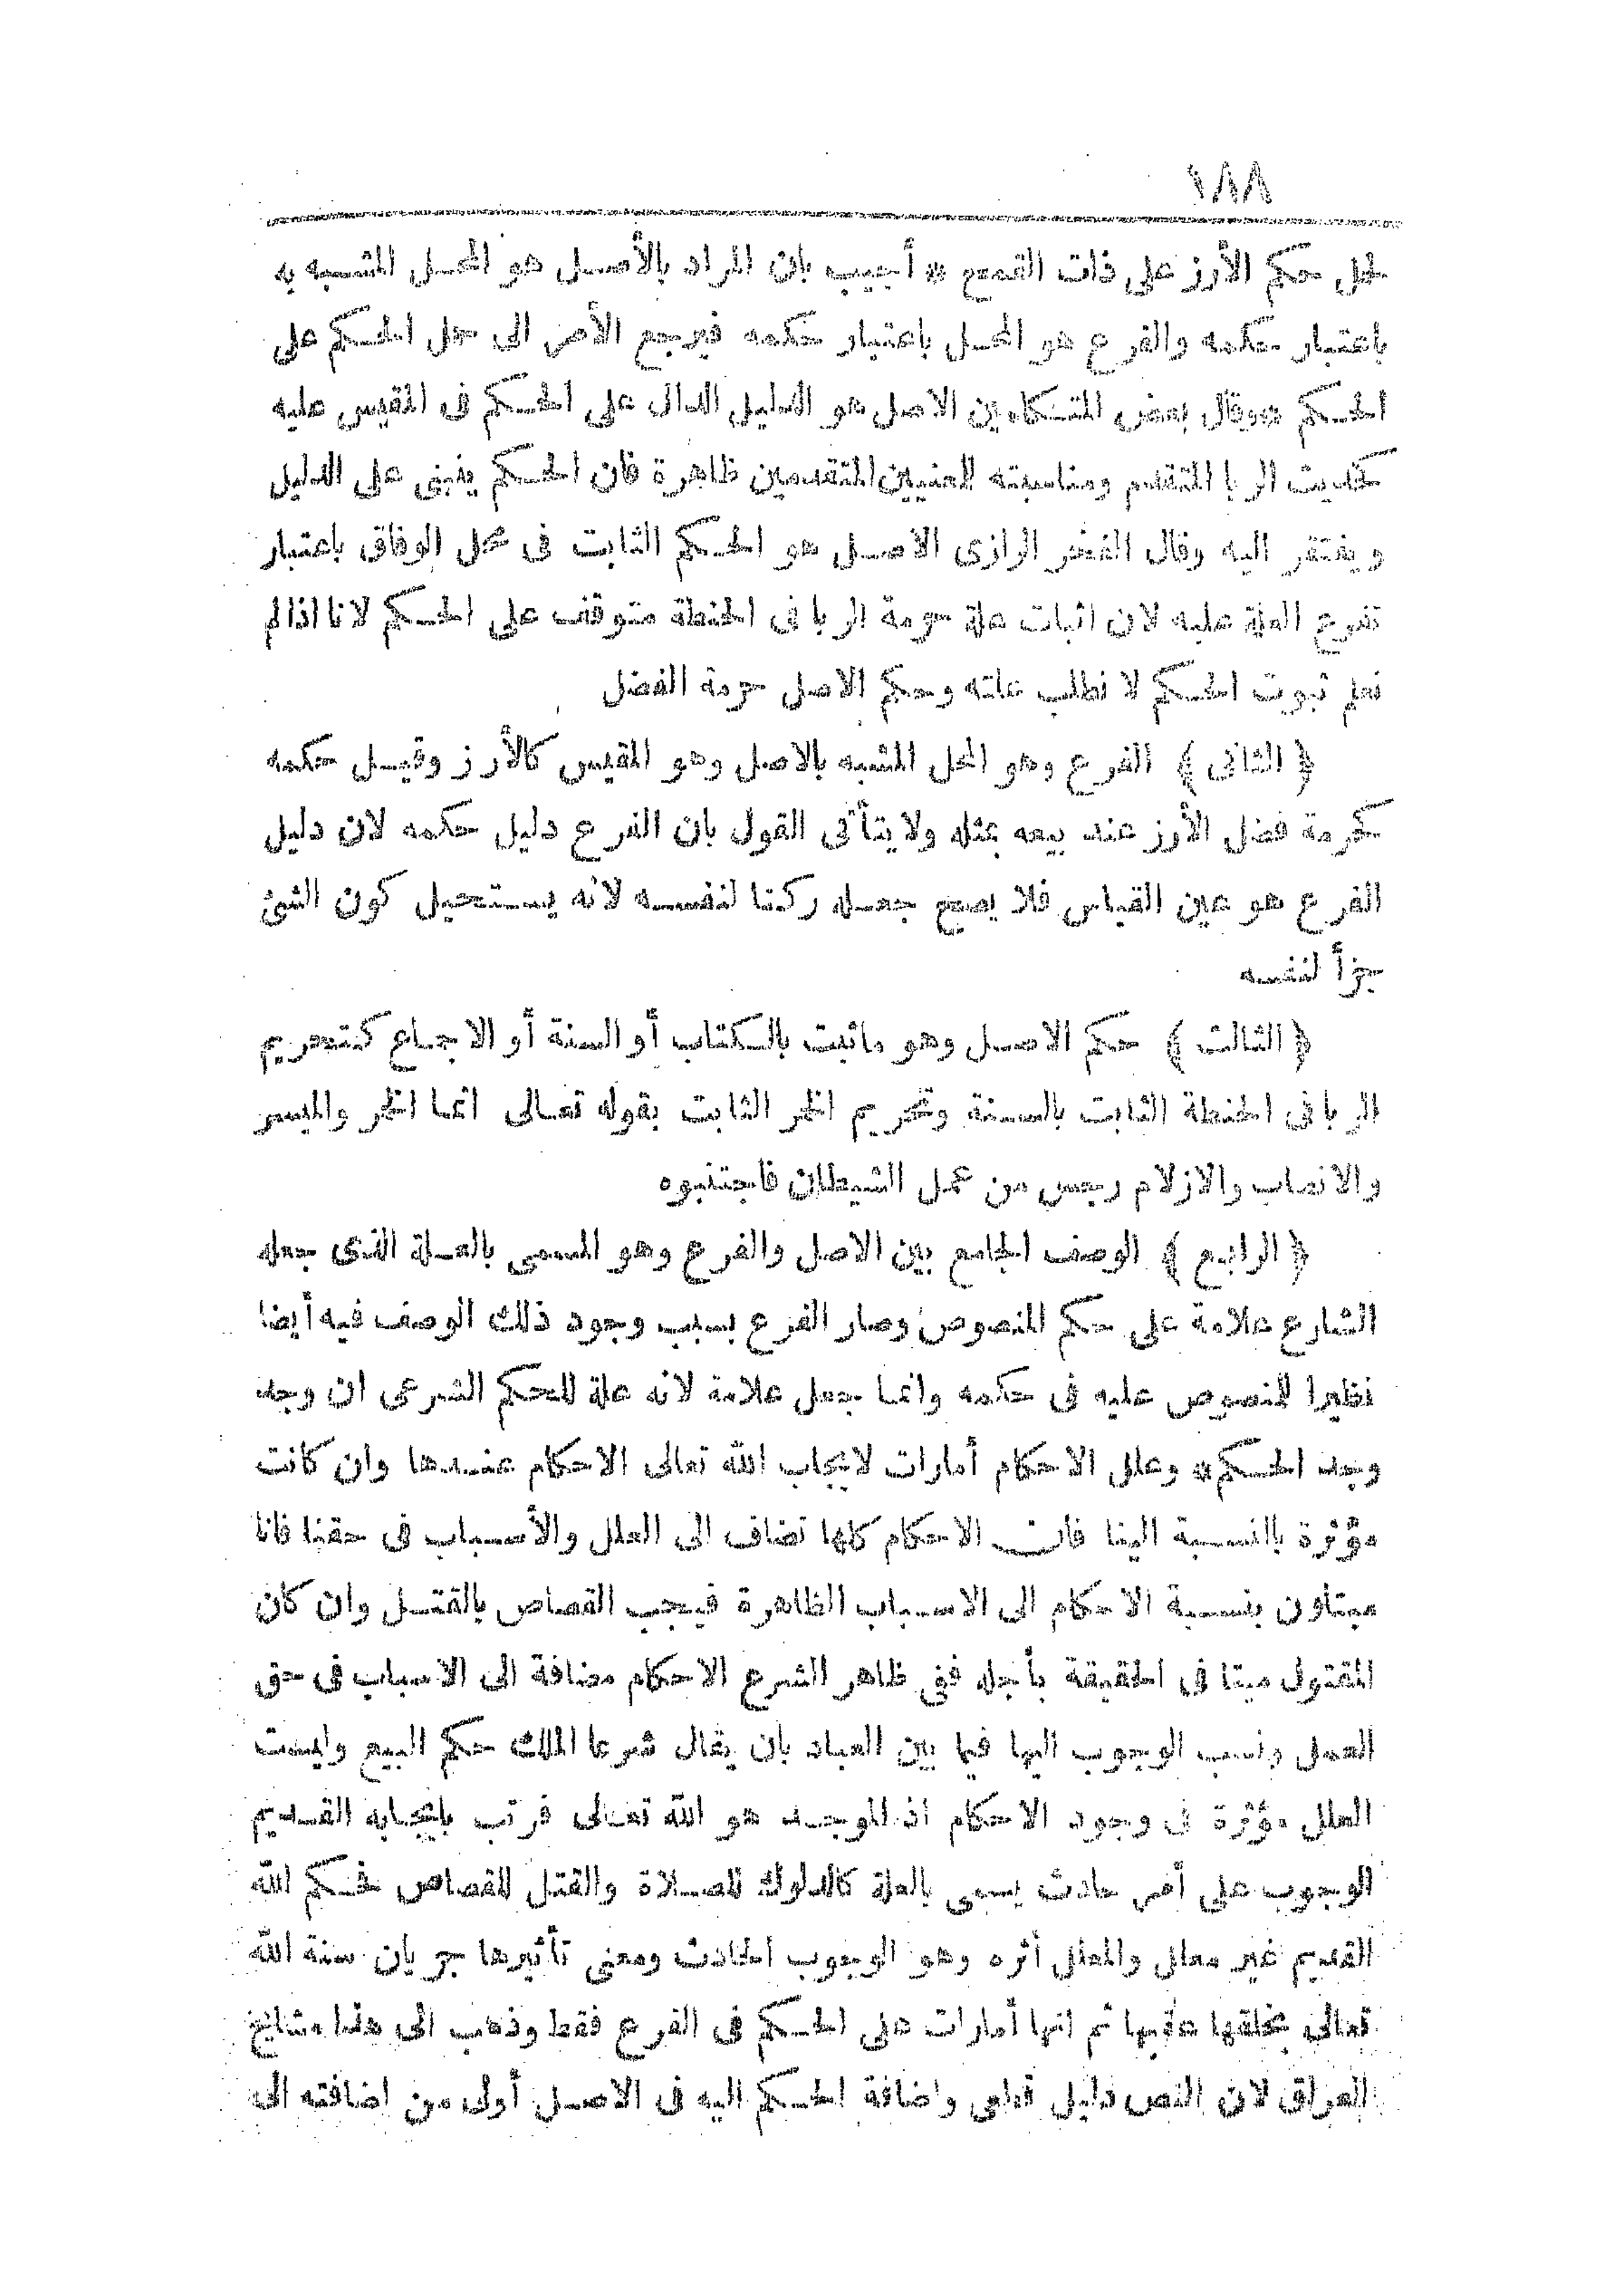 ١٨٨
لحل حكم الأرز على ذات القمح * أجيب بان المراد بالأصل هو المحل المشبه به
باعتبار حكمه والفرع هو المحل باعتبار حكمه فيرجع الأمر الى حمل الحكم على
الحكم * وقال بعض المتكلمين الاصل هو الدليل الدال على الحكم فى المقيس عليه
كحديث الربا المتقدم ومناسبته للمعنيين المتقدمين ظاهرة فان الحكم ينبنى على الدليل
ويفتقر اليه وقال الفخر الرازى الاصل هو الحكم الثابت فى محل الوفاق باعتبار
تفرع العلة عليه لان اثبات علة حرمة الربا فى الحنطة متوقف على الحكم لانا اذا لم
نعلم ثبوت الحكم لا نطلب علته وحكم الاصل حرمة الفضل
﴿ الثانى ﴾ الفرع وهو المحل المشبه بالاصل وهو المقيس كالأرز وقيل حكمه
كحرمة فضل الأرز عند بيعه بمثله ولا يتأتى القول بان الفرع دليل حكمه لان دليل
الفرع هو عين القياس فلا يصح جعله ركنا لنفسه لانه يستحيل كون الشئ
جزأ لنفسه
﴿ الثالث ﴾ حكم الاصل وهو ماثبت بالكتاب أو السنة أو الاجماع كتحريم
الربا فى الحنطة الثابت بالسنة وتحريم الخمر الثابت بقوله تعالى انما الخمر والميسر
والانصاب والازلام رجس من عمل الشيطان فاجتنبوه
﴿ الرابع ﴾ الوصف الجامع بين الاصل والفرع وهو المسمى بالعلة الذى جعله
الشارع علامة على حكم المنصوص وصار الفرع بسبب وجود ذلك الوصف فيه أيضا
نظيرا للمنصوص عليه فى حكمه وانما جعل علامة لانه علة للحكم الشرعى ان وجد
وجد الحكم * وعلل الاحكام أمارات لايجاب الله تعالى الاحكام عندها وان كانت
مؤثرة بالنسبة الينا فان الاحكام كلها تضاف الى العلل والأسباب فى حقنا فانا
مبتلون بنسبة الاحكام الى الاسباب الظاهرة فيجب القصاص بالقتل وان كان
المقتول ميتا فى الحقيقة بأجله ففى ظاهر الشرع الاحكام مضافة الى الاسباب فى حق
العمل ونسب الوجوب اليها فيما بين العباد بان يقال شرعا الملك حكم البيع وليست
العلل مؤثرة فى وجود الاحكام اذ الموجد هو الله تعالى فرتب بايجابه القديم
الوجوب على أمر حادث يسمى بالعلة كالدلوك للصلاة والقتل للقصاص فحكم الله
القديم غير معلل والمعلل أثره وهو الوجوب الحادث ومعنى تأثيرها جريان سنة الله
تعالى بخلقها عقبها ثم انها أمارات على الحكم فى الفرع فقط وذهب الى هذا مشائخ
العراق لان النص دليل قطعى واضافة الحكم اليه فى الاصل أولى من اضافته الى